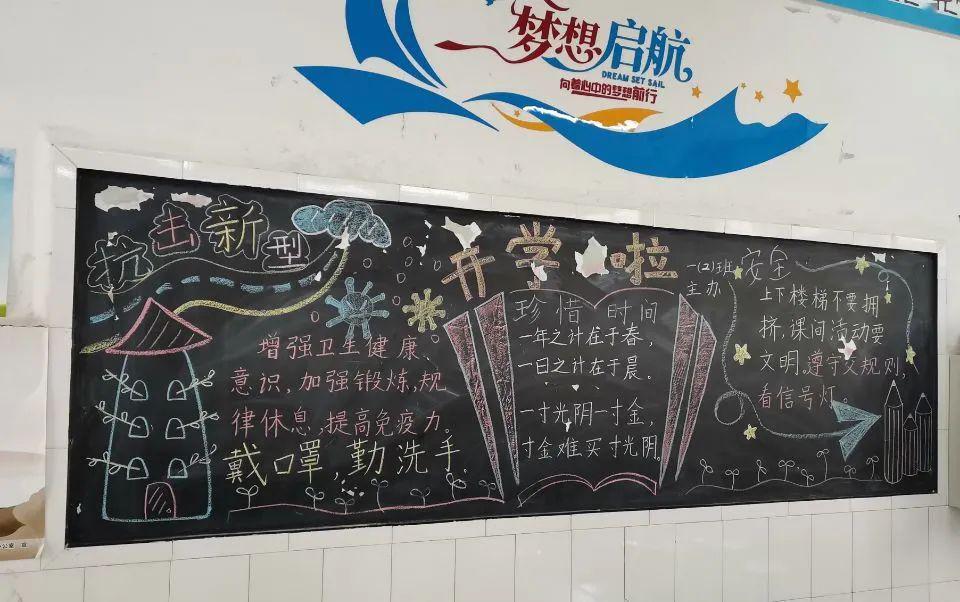 梦想启航
DREAM SET SAIL
向着心中的梦想前行
抗击新型
增强卫生健康
意识,加强锻炼,规
律休息,提高免疫力。
戴口罩,勤洗手
开学啦
珍惜时间
一年之计在于春,
一日之计在于晨。
一寸光阴一寸金,
寸金难买寸光阴。
一(2)班
主办
安全
上下楼梯不要拥
挤,课间活动要
文明,遵守交规则,
看信号灯。